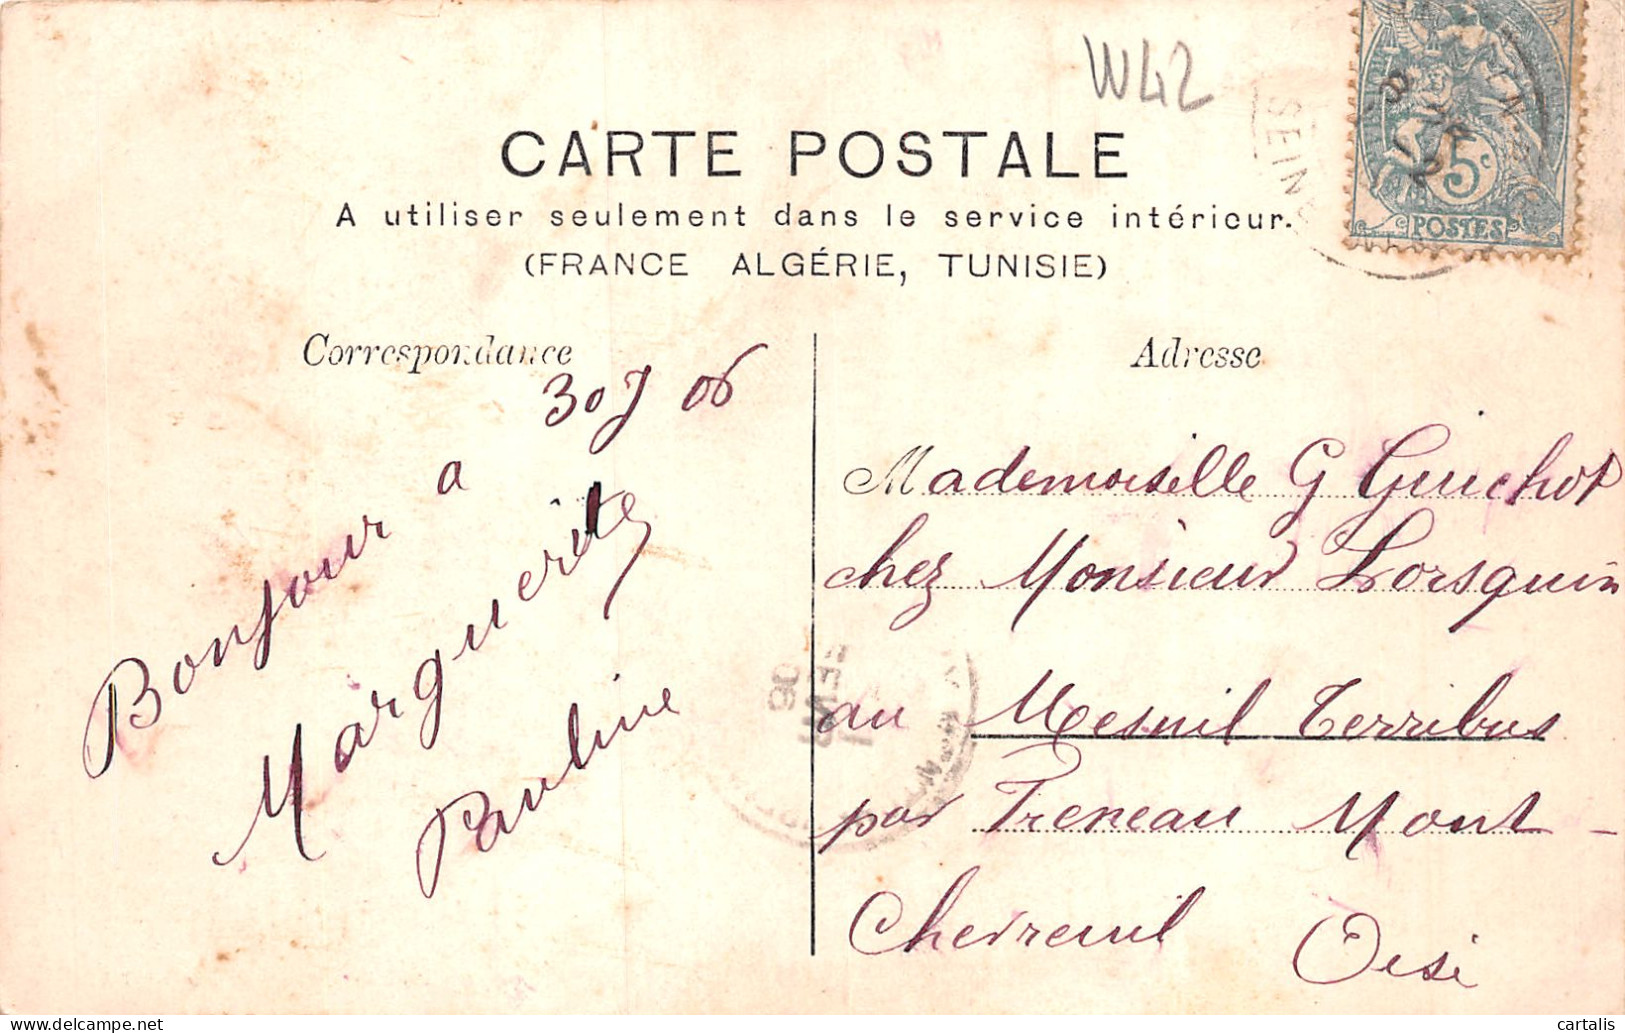 W42
CARTE POSTALE
A utiliser seulement dans le service intérieur.
(FRANCE ALGÉRIE, TUNISIE)
SEINE
5c
POSTES
Correspondance
30 J 06
Bonjour a
Marguerite
Pauline
Adresse
Mademoiselle G Guichot
chez Monsieur Lorsquin
au Mesnil Terribus
par Freneau Mont-
Chevreuil Oise
06
cartalis